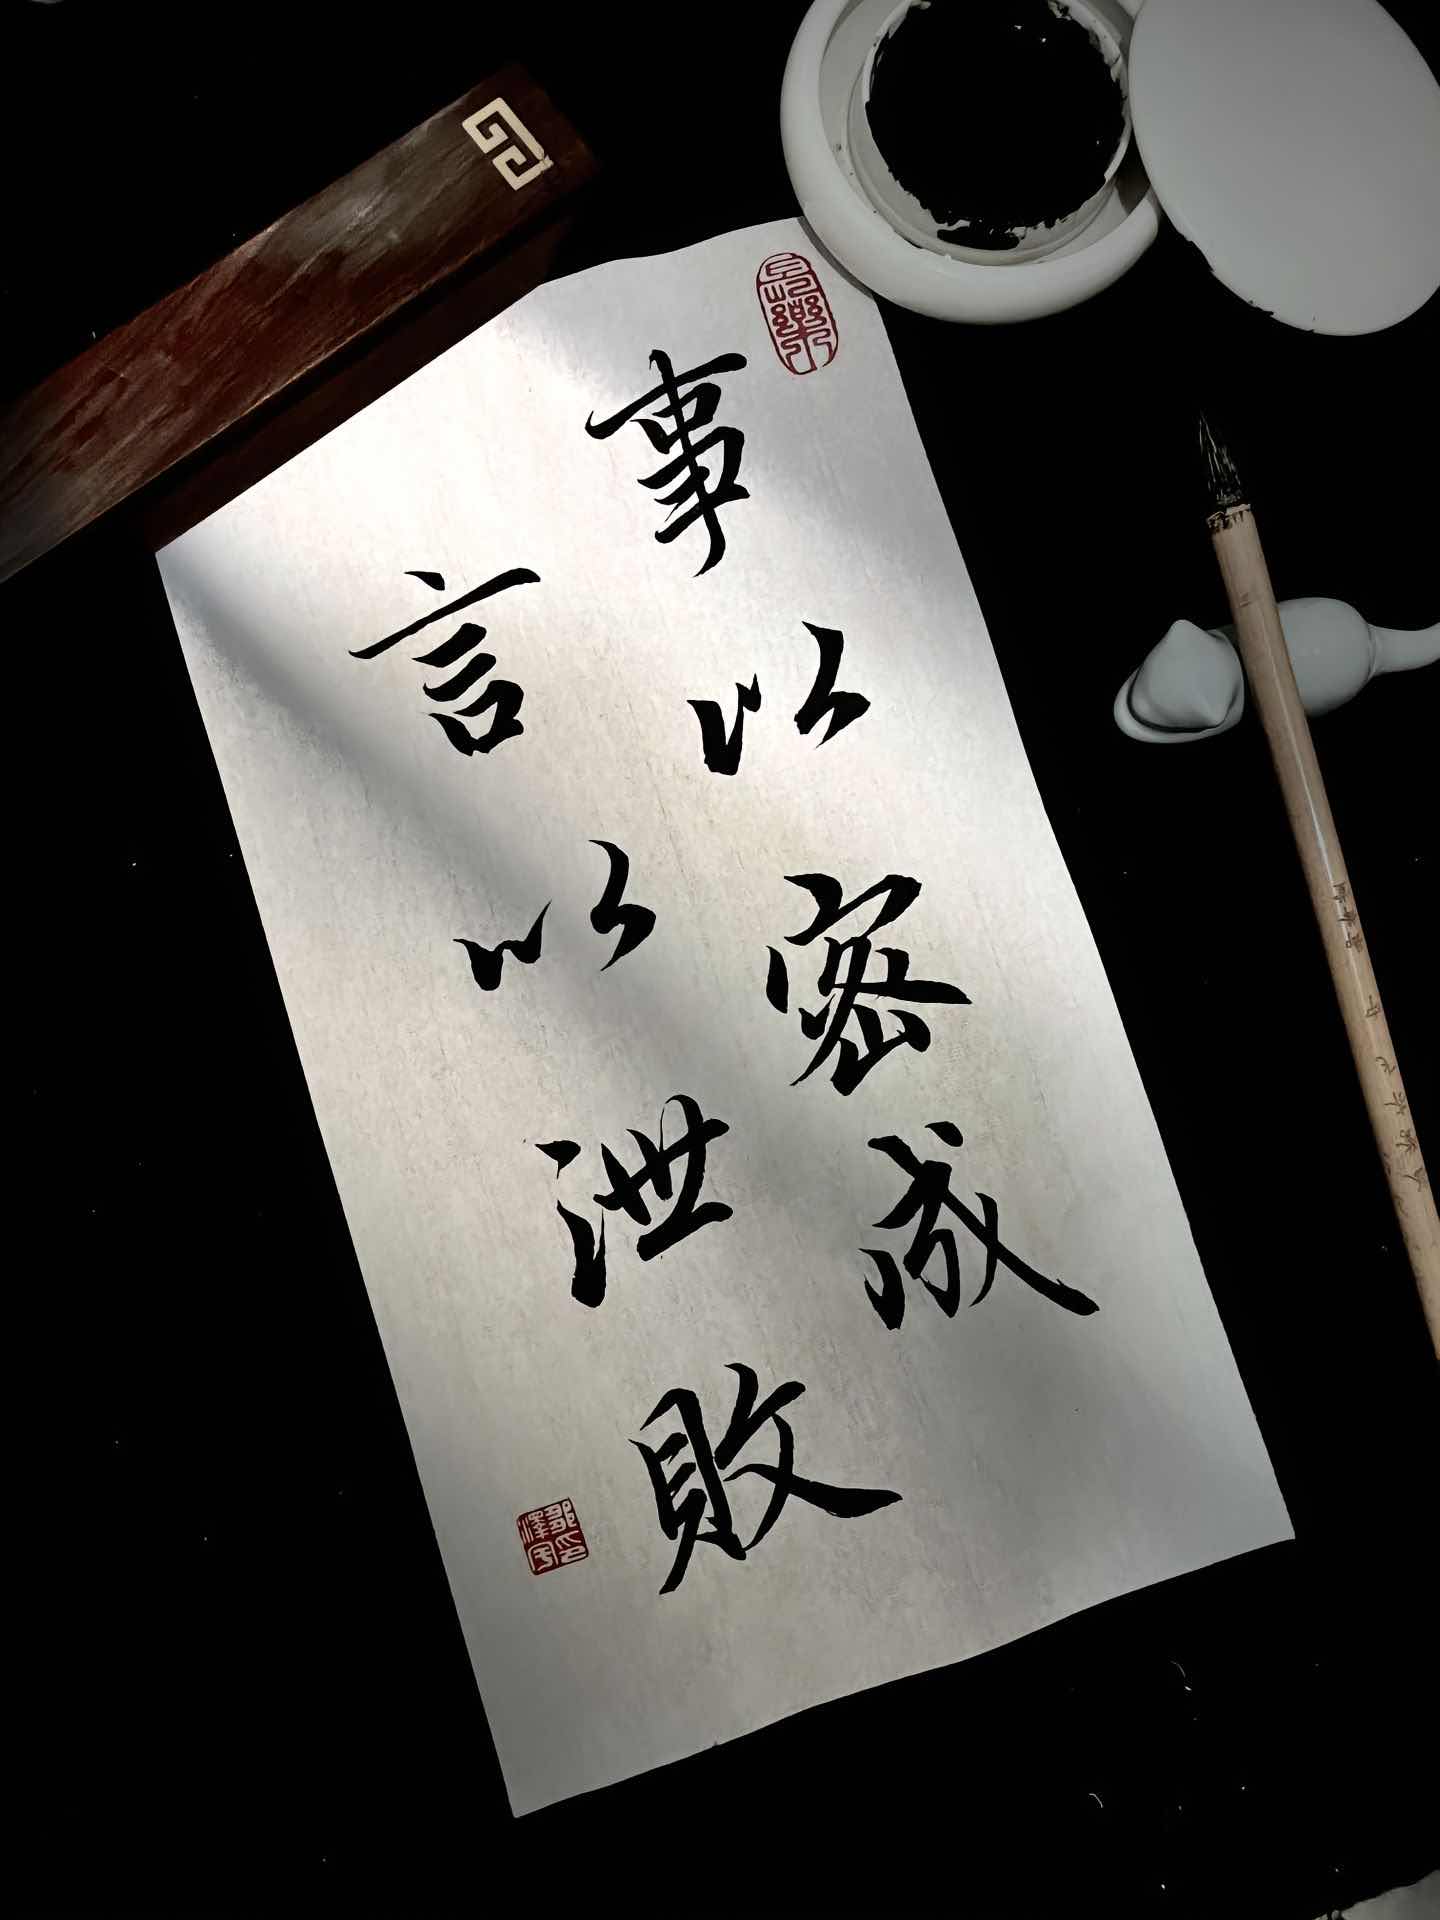 事以密成
言以泄敗